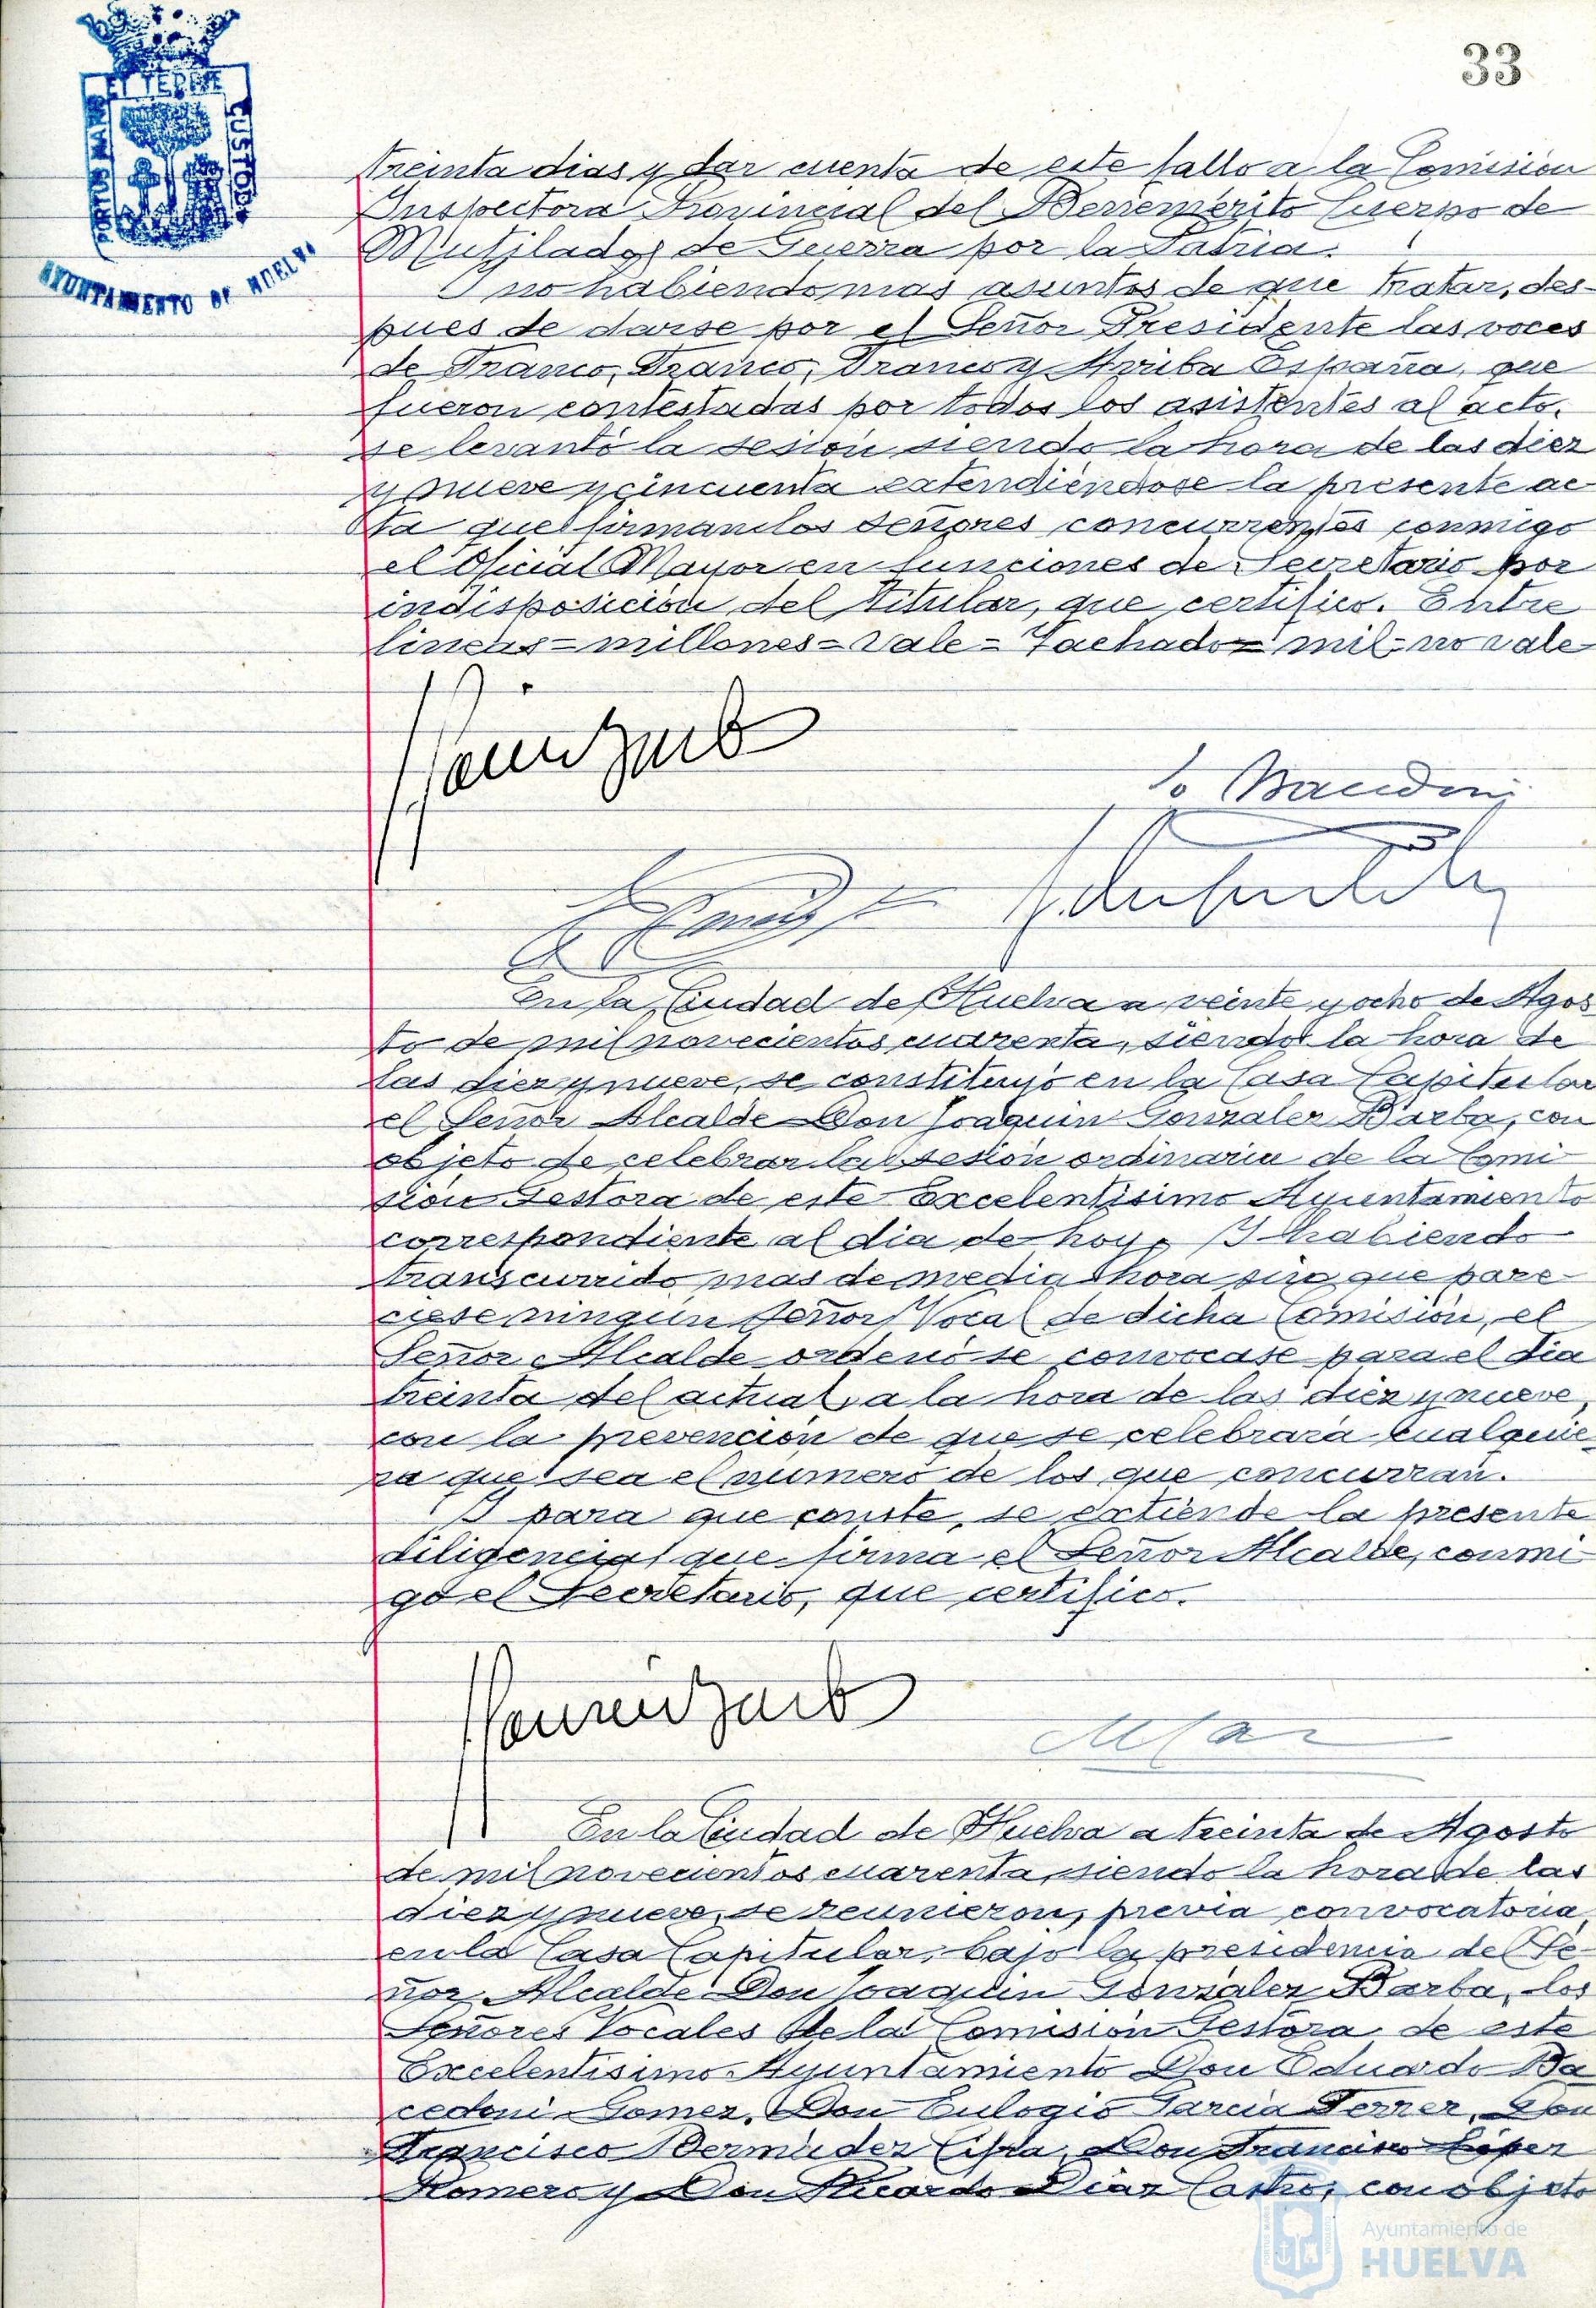 33
PORTUS MARIS ET TERRE CUSTODIA
AYUNTAMIENTO DE HUELVA
treinta dias y dar cuenta de este fallo a la Comision
Inspectora Provincial del Benemérito Cuerpo de
Mutilados de Guerra por la Patria.
Y no habiendo mas asuntos de que tratar, des-
pues de darse por el Señor Presidente las voces
de Franco, Franco, Franco y Arriba España, que
fueron contestadas por todos los asistentes al acto,
se levantó la sesión siendo la hora de las diez
y nueve y cincuenta extendiéndose la presente ac-
ta que firman los señores concurrentes conmigo
el Oficial Mayor en funciones de Secretario por
indisposición del titular, que certifico. Entre
lineas = millones = Vale = Tachado = mil = no vale
En la Ciudad de Huelva a veinte y ocho de Agos
to de mil novecientos cuarenta, siendo la hora de
las diez y nueve, se constituyó en la Casa Capitular
el Señor Alcalde Don Joaquin Gonzalez Barba, con
objeto de celebrar la sesión ordinaria de la Comi
sión Gestora de este Excelentisimo Ayuntamiento
correspondiente al dia de hoy. Y habiendo
transcurrido mas de media hora sin que pare-
ciese ningun Señor Vocal de dicha Comisión, el
Señor Alcalde ordenó se convocase para el dia
treinta del actual, a la hora de las diez y nueve,
con la prevención de que se celebrará cualquie
ra que sea el número de los que concurran.
Y para que conste, se extiende la presente
diligencia que firma el Señor Alcalde, conmi
go el Secretario, que certifico.
En la Ciudad de Huelva a treinta de Agosto
de mil novecientos cuarenta, siendo la hora de las
diez y nueve, se reunieron, previa convocatoria
en la Casa Capitular, bajo la presidencia del Se-
ñor Alcalde Don Joaquin Gonzalez Barba, los
Señores Vocales de la Comisión Gestora de este
Excelentisimo Ayuntamiento Don Eduardo Ba
cedoni Gomez, Don Eulogio Garcia Ferrer, Don
Francisco Bermudez Don Francisco López
Romero y Don Ricardo Diaz Castro, con objeto
Ayuntamiento de
HUELVA